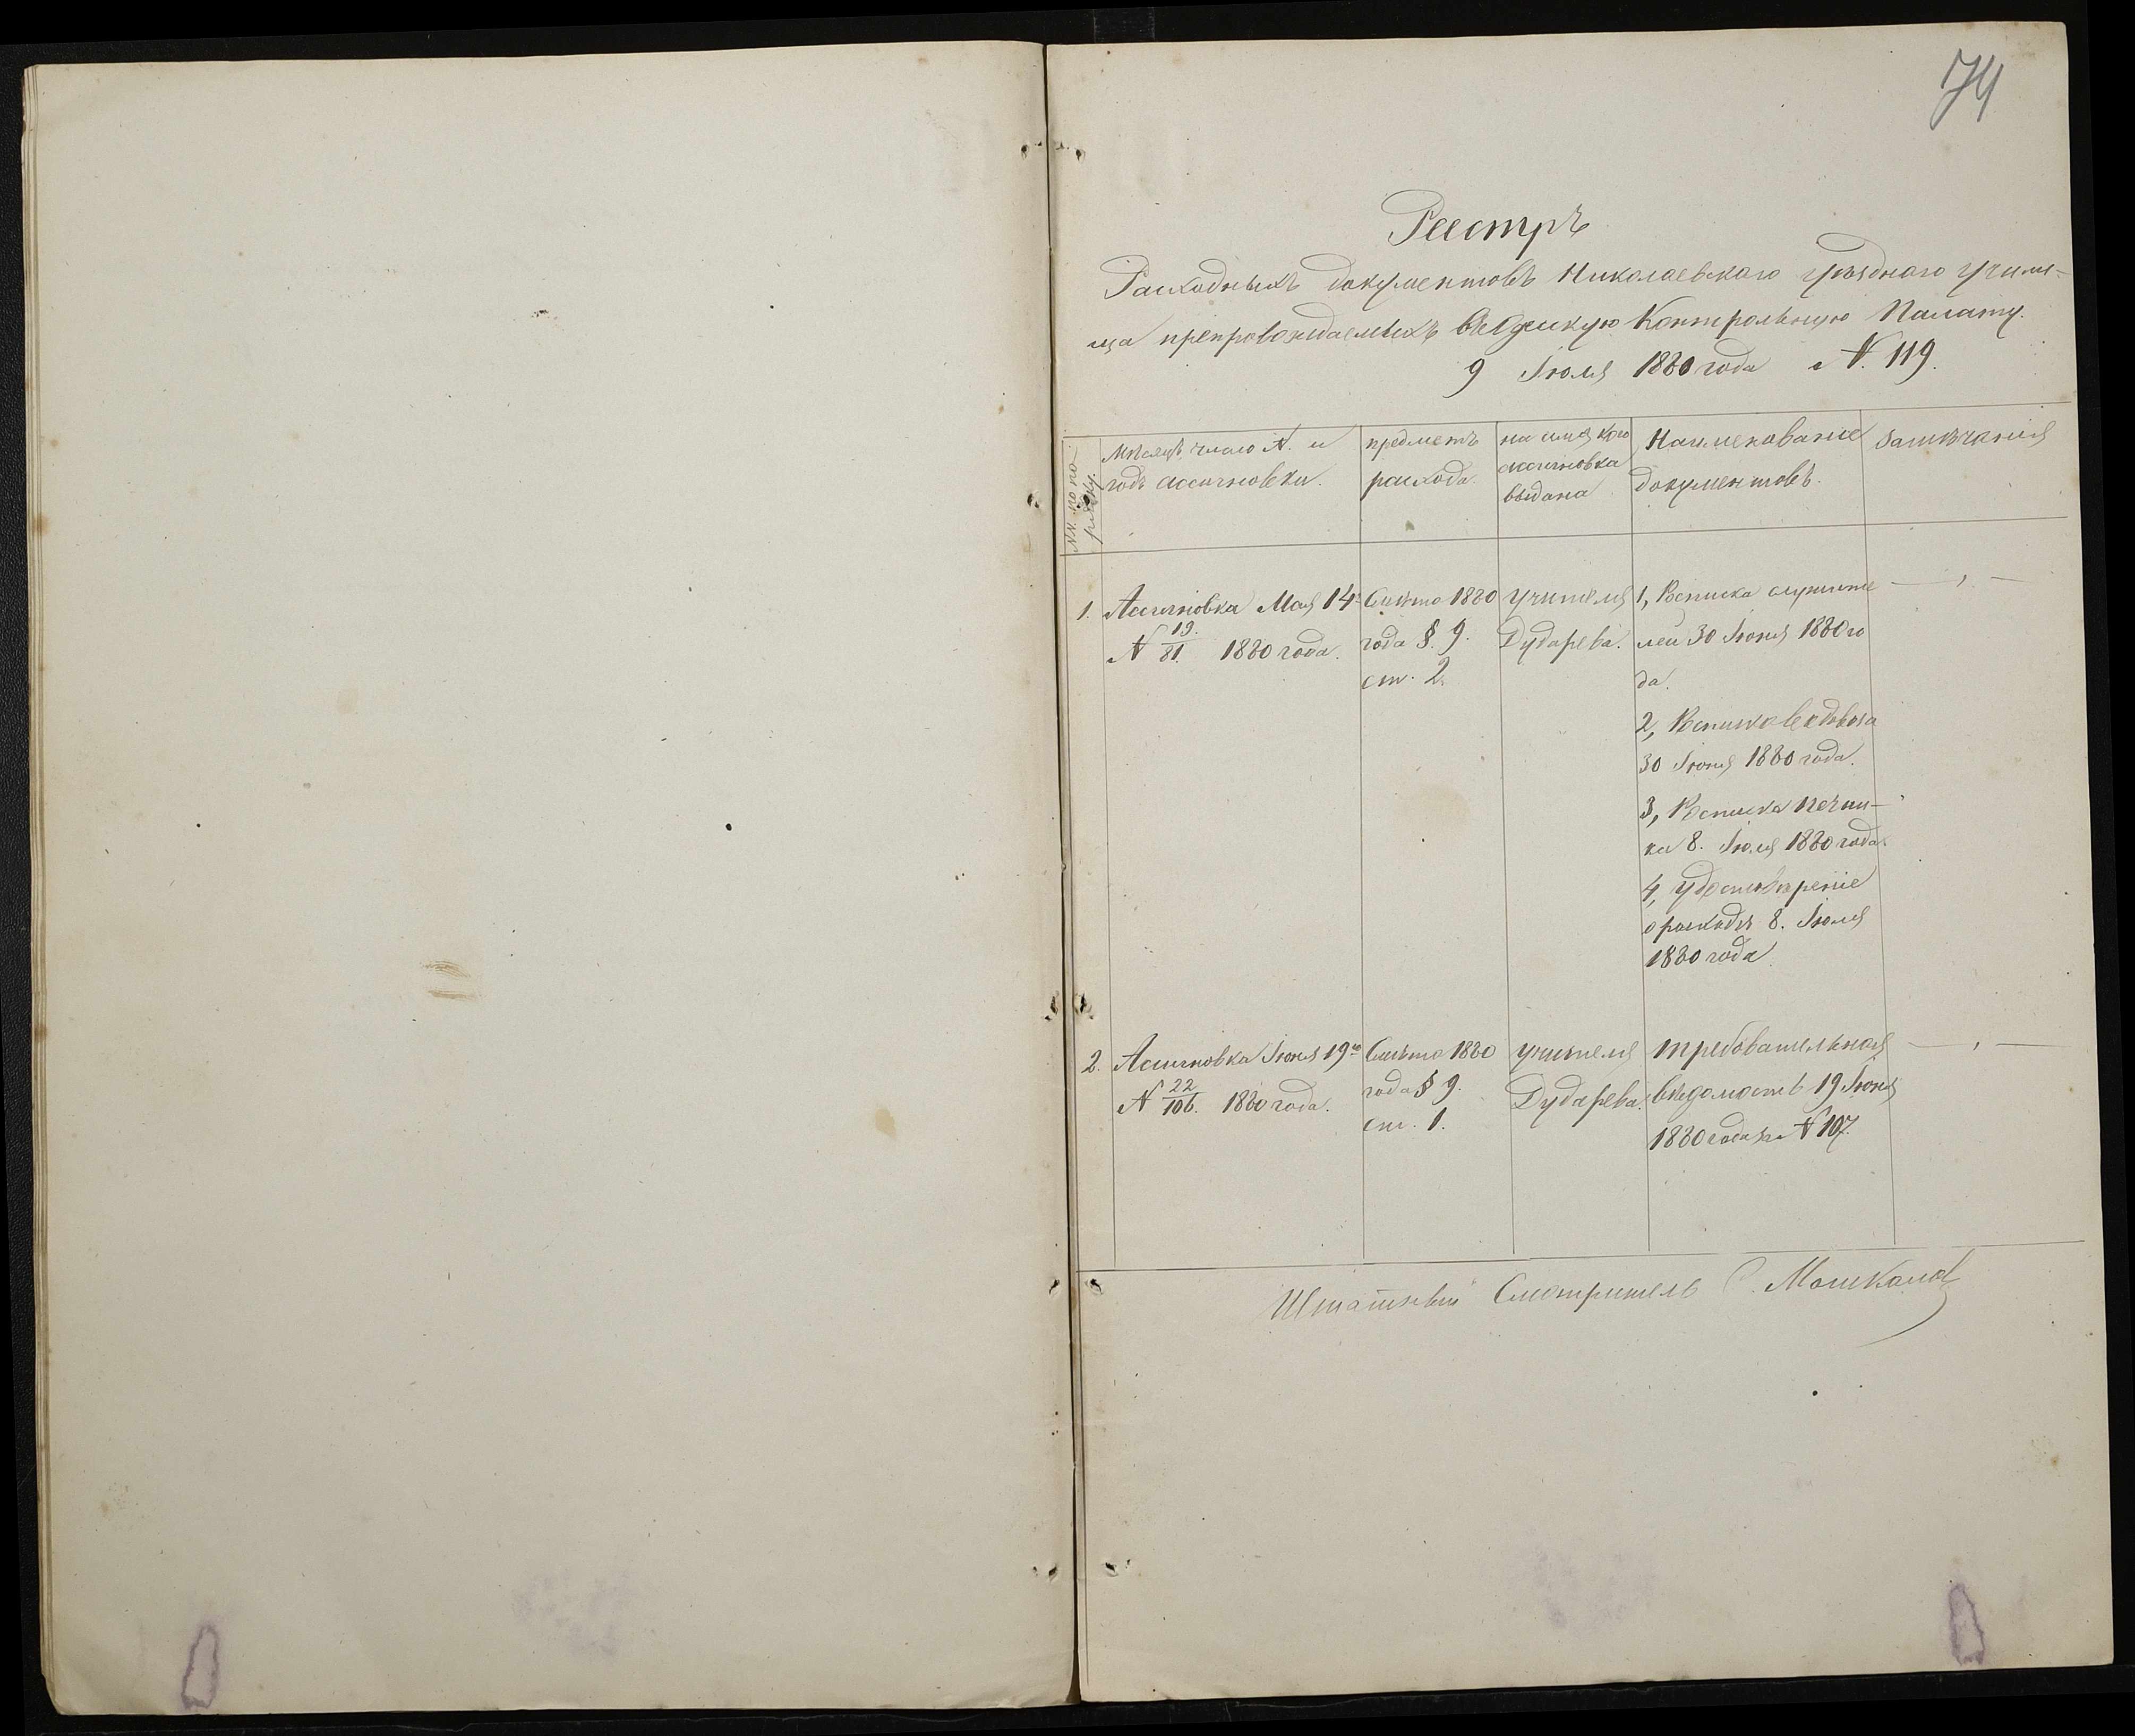 74
Реестръ
Расходныхъ документовъ Николаевскаго уѣзднаго учили-
ща препровождаемыхъ въ Одесскую Контрольную Палату.
9 Іюля 1880 года № 119.
№№. по по-
рядку.
Мѣсяцъ, число №. и
годъ ассигновки.
предметъ
расхода.
на имя кого
ассигновка
выдана
Наименованіе
документовъ.
Замѣчанія
1. Ассигновка Мая 14
№ 19./81. 1880 года.
Смѣта 1880
года §. 9.
ст. 2.
учителя
Дударева.
1, Росписка служите
лей 30 Іюня 1880 го
да.
2, Росписка водовоза
30 Іюня 1880 года.
3, Росписка печни-
ка 8. Іюля 1880 года.
4, удостовѣреніе
о расходѣ 8. Іюля
1880 года.
2. Ассигновка Іюня 19го
№ 22/106. 1880 года.
Смѣта 1880
года § 9.
ст. 1.
учителя
Дударева.
требовательная
вѣдомость 19 Іюня
1880 года за № 107.
Штатный Смотритель